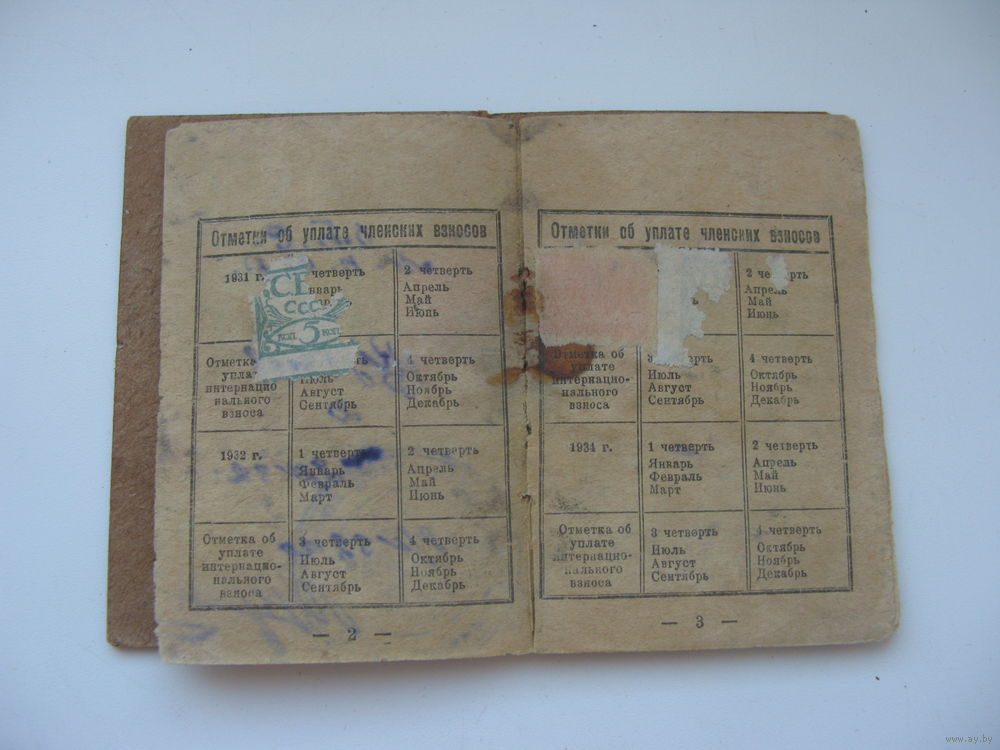 Отметки об уплате членских взносов
1931 г.
четверть
нварь
2 четверть
Апрель
Май
Июнь
СВ
СССР
КОП. 5 КОП.
Отметка
уплат
интернацио-
нального
взноса
ть
Июль
Август
Сентябрь
4 четверть
Октябрь
Ноябрь
Декабрь
1932 г.
1 четверть
Январь
Февраль
Март
2 четверть
Апрель
Май
Июнь
Отметка об
уплате
интернацио-
нального
взноса
3 четверть
Июль
Август
Сентябрь
4 четверть
Октябрь
Ноябрь
Декабрь
— 2 —
Отметки об уплате членских взносов
2 че рть
Апрель
Май
Июнь
Отметка об
уплате
интернацио-
нального
взноса
3 четверть
Июль
Август
Сентябрь
4 четверть
Октябрь
Ноябрь
Декабрь
1934 г.
1 четверть
Январь
Февраль
Март
2 четверть
Апрель
Май
Июнь
Отметка об
уплате
интернацио-
нального
взноса
3 четверть
Июль
Август
Сентябрь
4 четверть
Октябрь
Ноябрь
Декабрь
— 3 —
www.ay.by